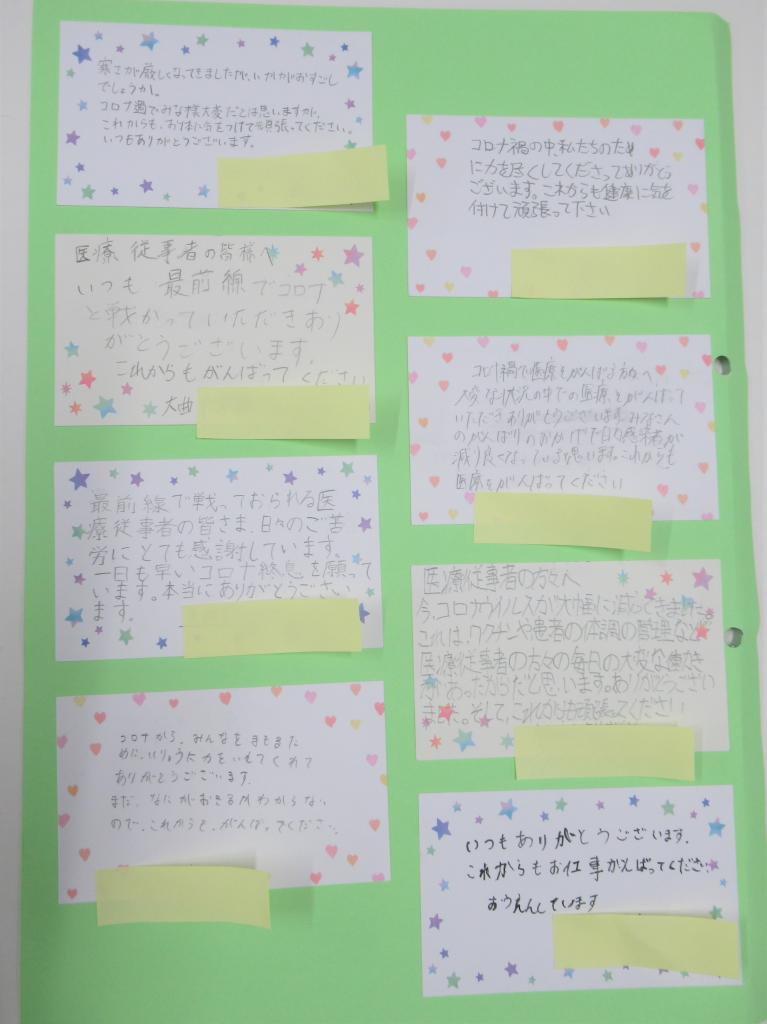 寒さが厳しくなってきましたが、いかがおすごし
でしょうか。
コロナ過でみな様大変だとは思いますが、
これからも、お体に気をつけて頑張ってください。
いつもありがとうございます。
医療従事者の皆様へ
いつも最前線でコロナ
と戦かっていただきあり
がとうございます。
これからもがんばってください
大曲
最前線で戦っておられる医
療従事者の皆さま、日々のご苦
労にとても感謝しています。
一日も早いコロナ終息を願って
います。本当にありがとうござい
ます。
コロナから、みんなをまもるた
めに、いりょう大力をいれてくれて
ありがとうございます。
まだ、なにがおきるかわからない
ので、これからも、がんばってください。
コロナ禍の中、私たちのため
に力を尽くしてくださってありがとう
ございます。これからも健康に気を
付けて頑張って下さい
コロナ禍で医療をがんばる方々へ
大変な状況の中での医療をがんばって
いただきありがとうございます。みなさん
のがんばりのおかげで日々感染者が
減り良くなっていると思います。これからも
医療をがんばってください
医療従事者の方々へ
今、コロナウイルスが大幅に減ってきました。
これは、ワクチンや患者の体調の管理など
医療従事者の方々の毎日の大変な働き
があったからだと思います。ありがとうござい
ました。そして、これからも頑張ってください
いつもありがとうございます。
これからもお仕事がんばってください。
おうえんしています